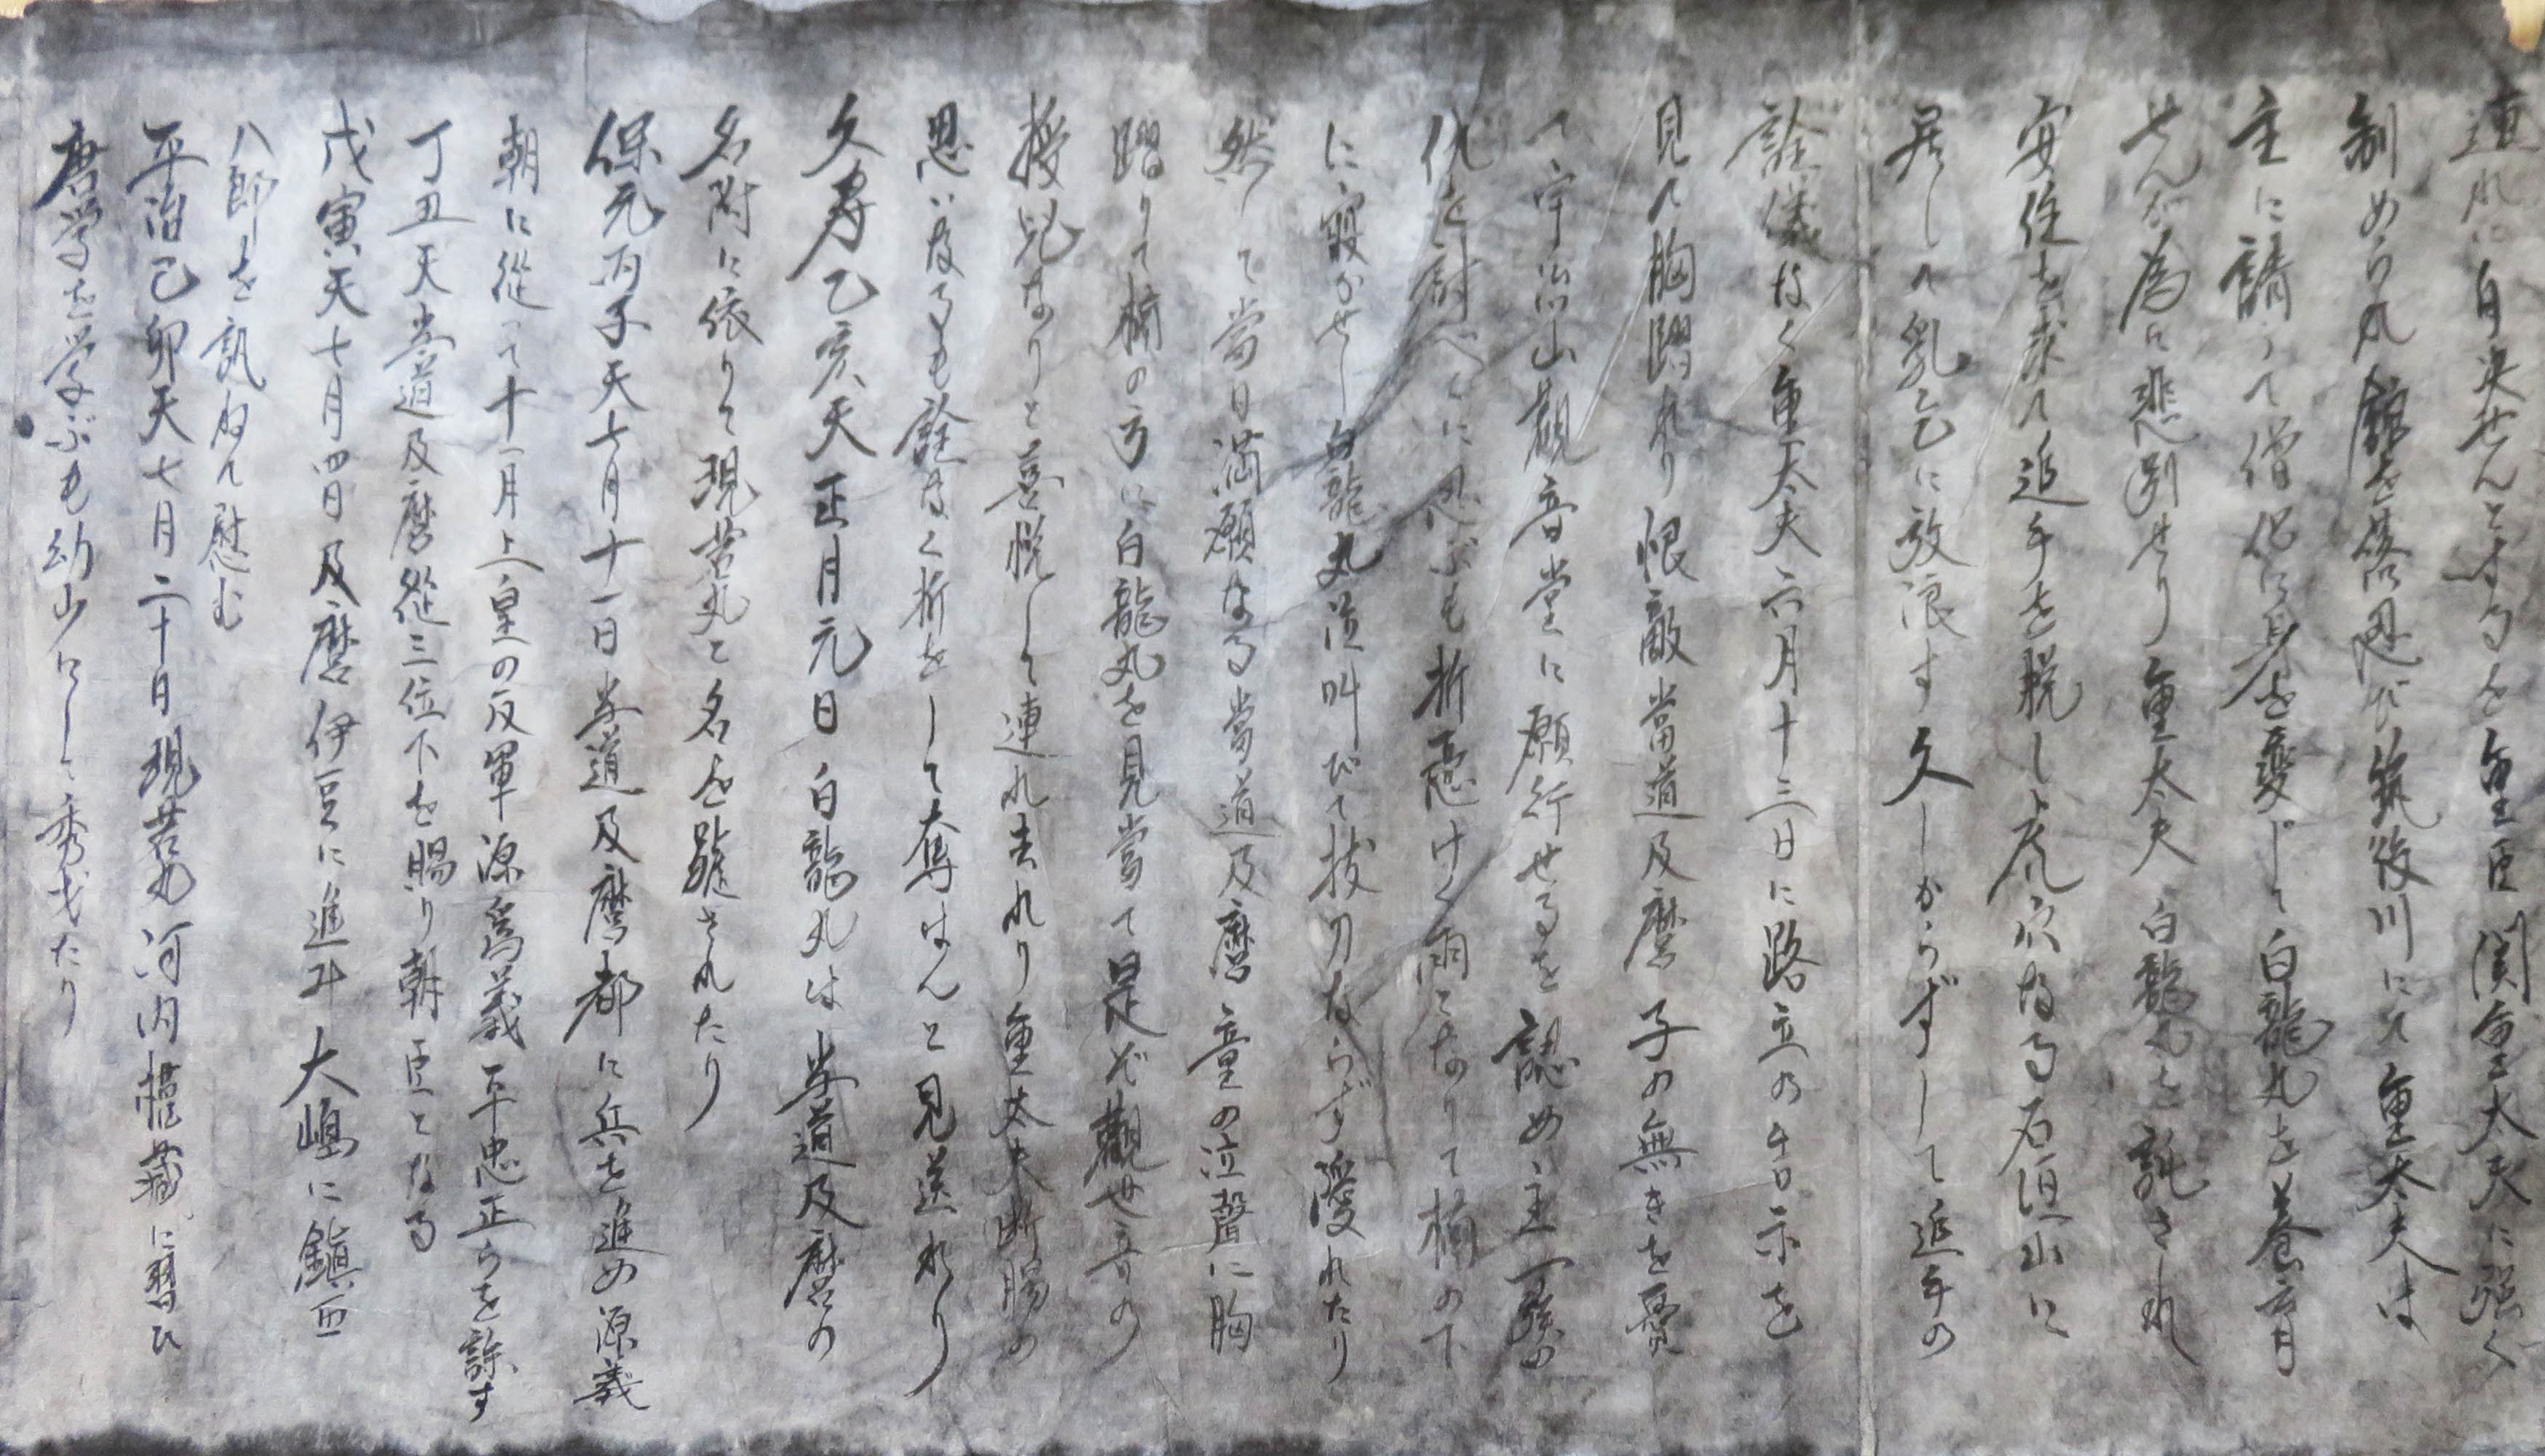 道れに自決せんとするを重臣関重太夫に强く
制められ丸館を落忍び筑後川にて重太夫は
主に請うて僧侶に身を変じて白龍丸を養育
せんが為に悲別せり重太夫白龍丸を託され
安住を求て追手を脱しよ尻穴なる石垣山に
居して乳乞に放浪す久しからずして追手の
詮儀なく重太夫六月十三日に路立の午日示を
見て胸躍れり恨敵當道及麿子の無きを憂
て宇治山觀音堂に願行せるを認め主一發の
仇を尉べくに忍ぶも折悪けく雨となりて楠の下
に寝かせし白龍丸泣叫びて抜刀ならず渡れたり
然して當日満願なる當道及麿童の泣聲に胸
躍りて楠の方に白龍丸を見當て是ぞ觀世音の
授児なりと喜悦して連れ去れり重太夫断腸の
思いなるも詮なく折をして奪はんと見送れり
久寿乙亥天正月元日白龍丸は當道及麿の
名附に依りて現若丸と名を蹤されたり
保元丙子天七月十一日當道及麿都に兵を進め源義
朝に從って十一月上皇の反軍源爲義平忠正らを誅す
丁丑天當道及麿從三位下を賜り朝臣となる
戊寅天七月四日及麿伊豆に進み大嶋に鎭西
八郎を訊ねて慰む
平治己卯天七月二十日現若丸河内權藏に習ひ
唐学を学ぶも幼少にして秀才たり